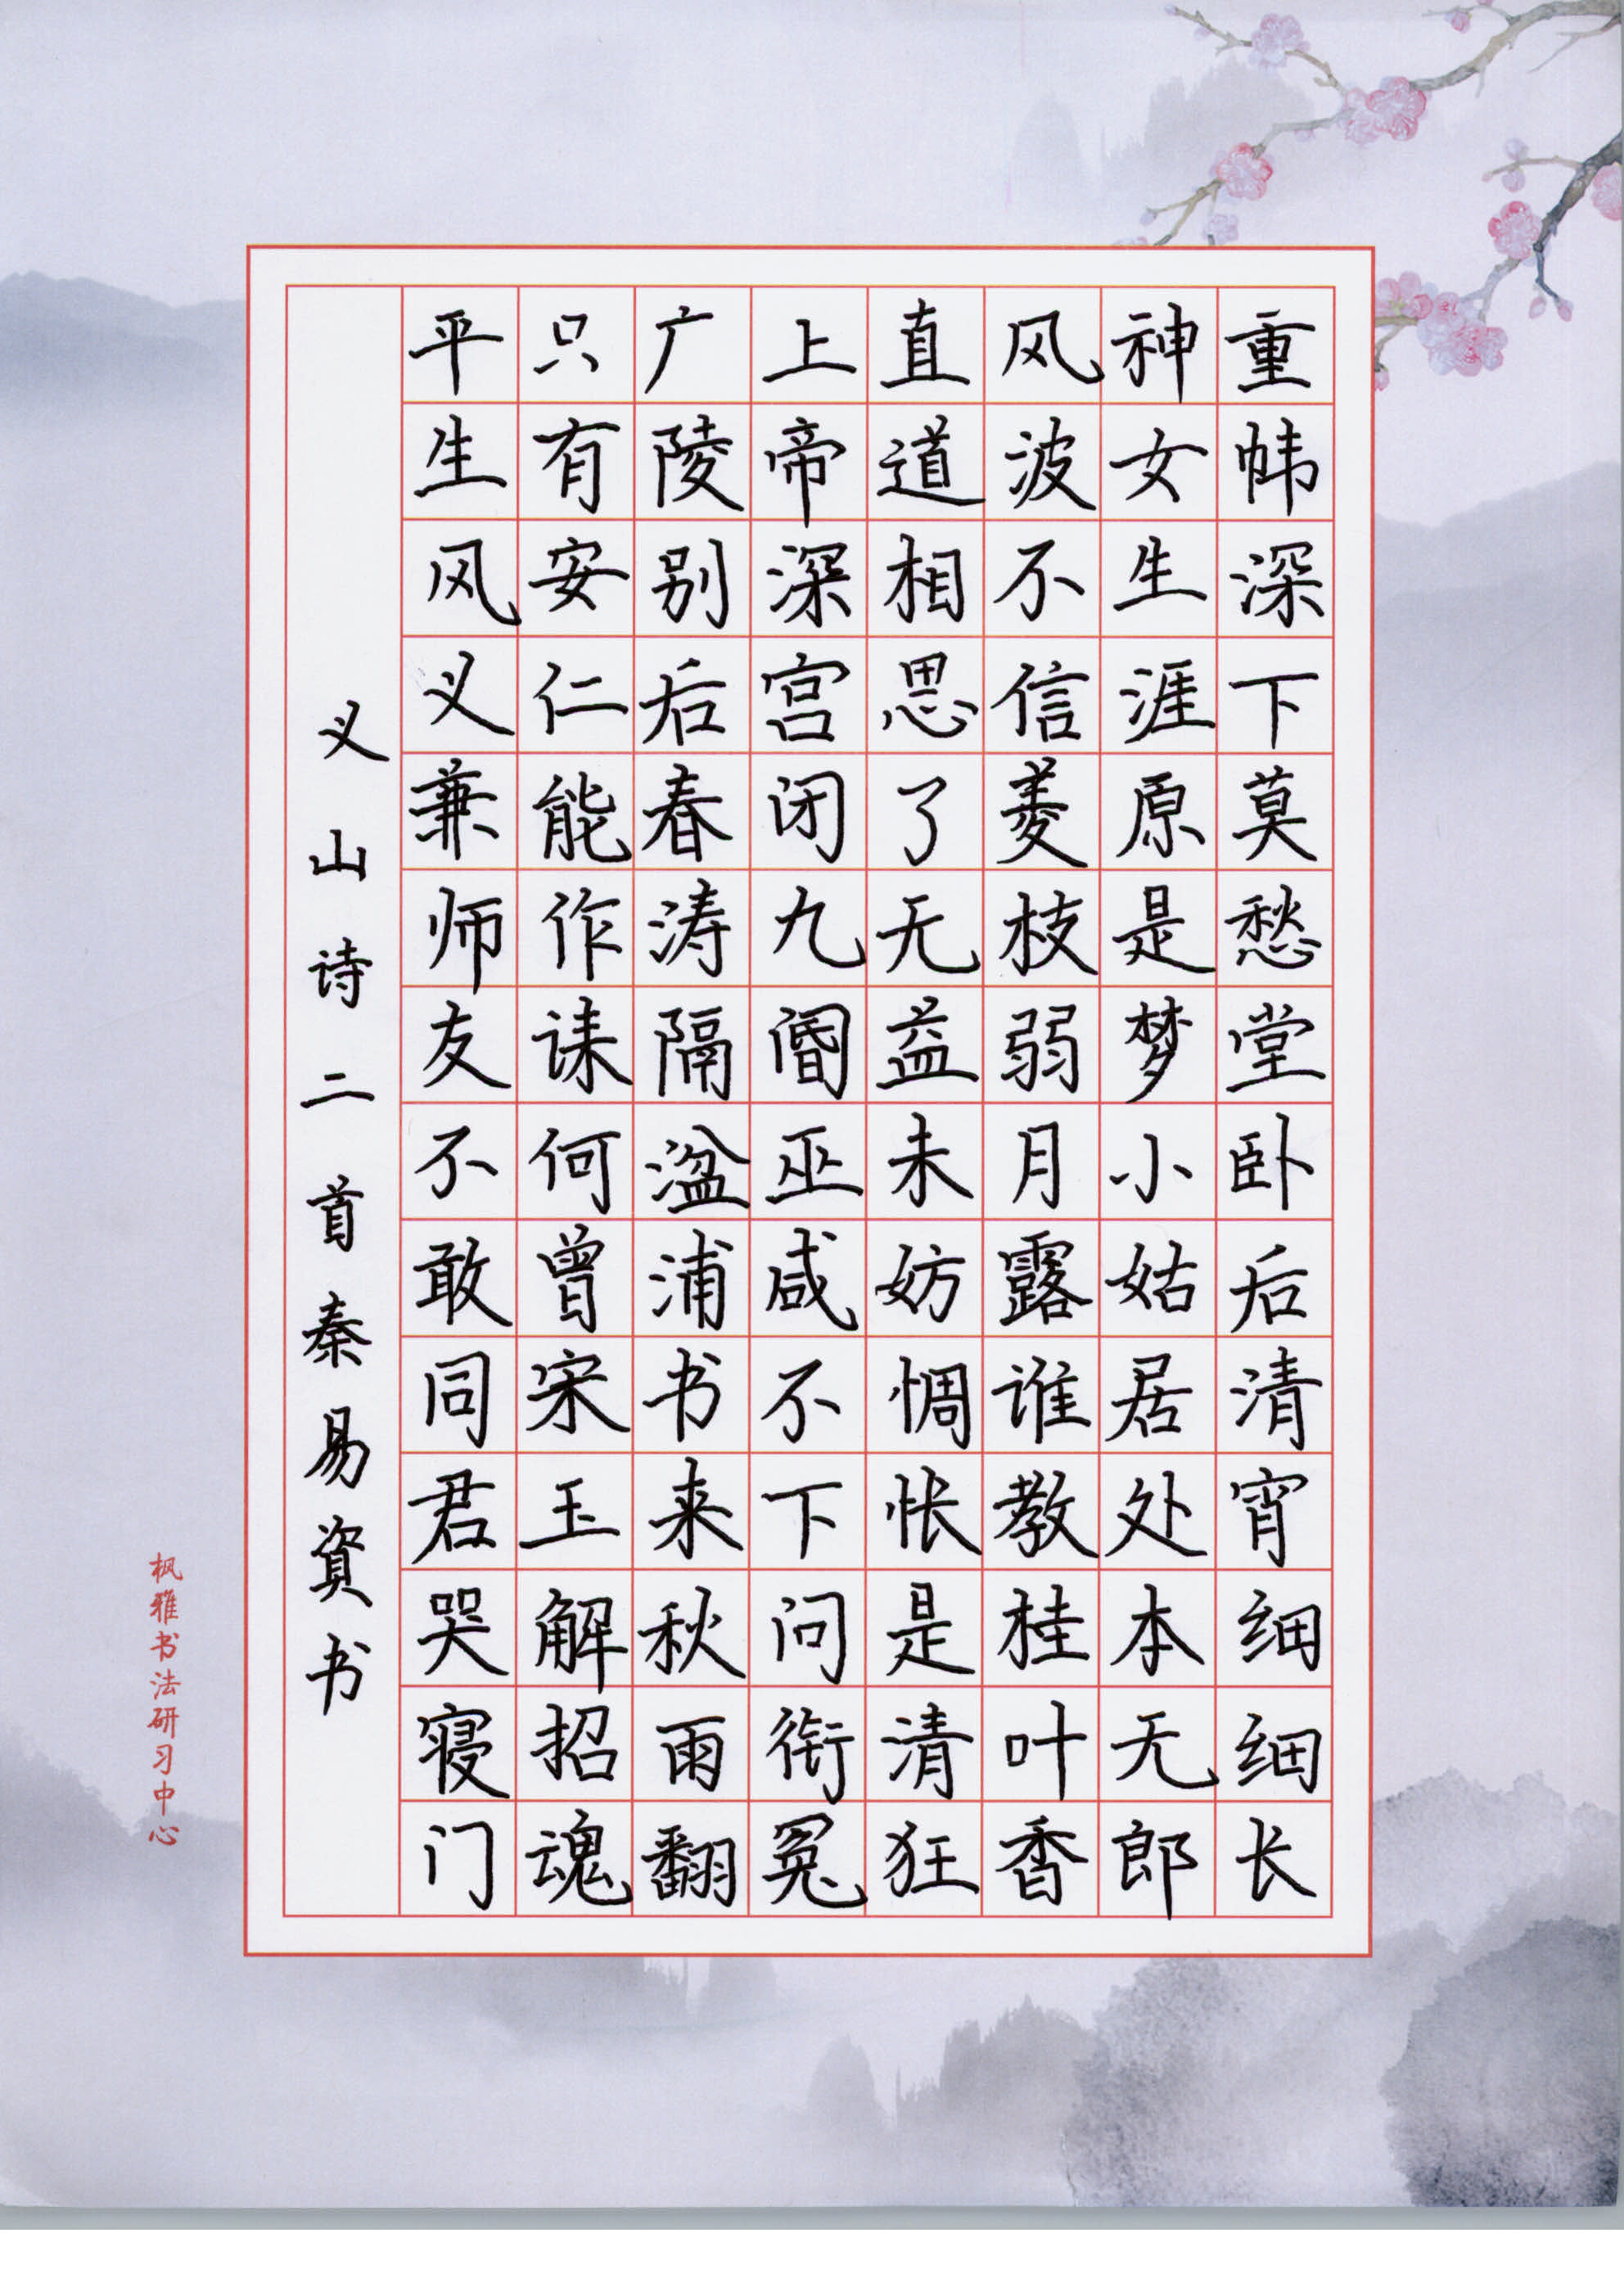 重帏深下莫愁堂卧后清宵细细长
神女生涯原是梦小姑居处本无郎
风波不信菱枝弱月露谁教桂叶香
直道相思了无益未妨惆怅是清狂
上帝深宫闭九阍巫咸不下问衔冤
广陵别后春涛隔湓浦书来秋雨翻
只有安仁能作诔何曾宋玉解招魂
平生风义兼师友不敢同君哭寝门
义山诗二首秦易資书
枫雅书法研习中心